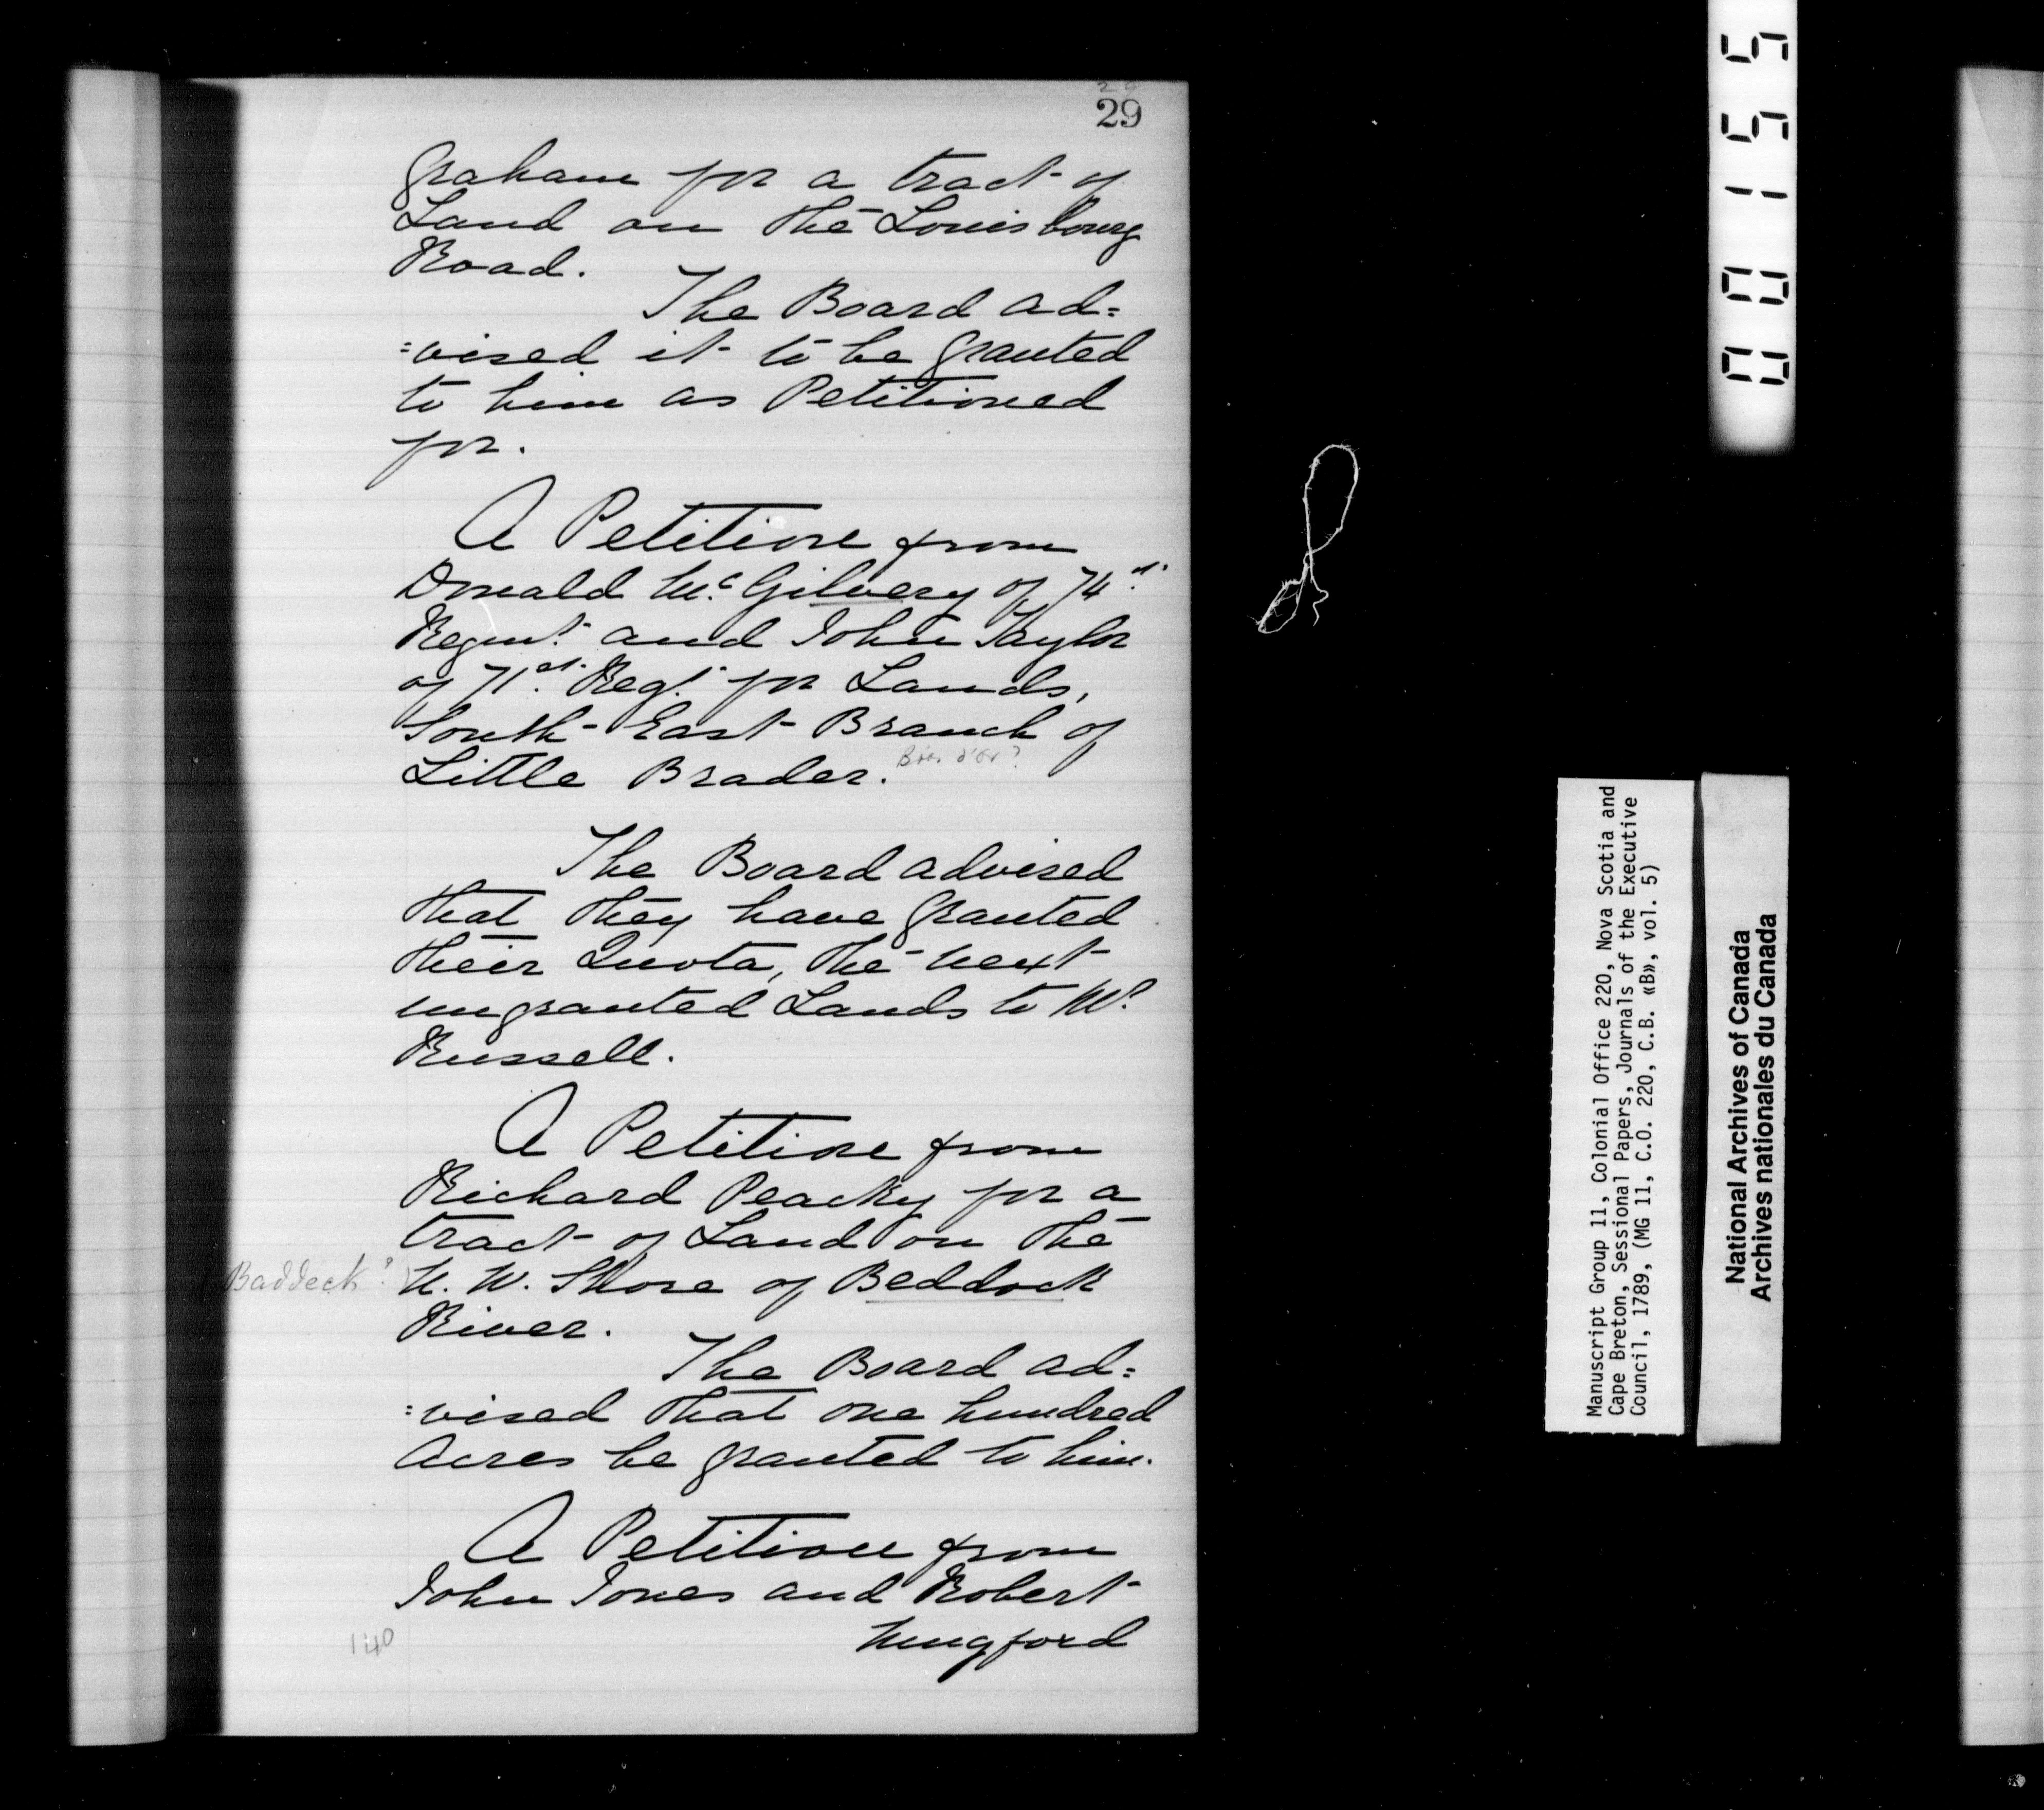 29
29
Graham for a tract of
Land on the Louisbourg
Road.
The Board ad=
=vised it to be granted
to him as Petitioned
for.
A Petition from
Donald Mc Gilvery of 74th
Regmt and John Taylor
of 71st Regt for Lands,
South East Branch of
Little Brader. Bras d'Or?
The Board advised
that they have granted
their Quota, the next
ungranted Lands to Mr
Russell.
A Petition from
Richard Peacky for a
tract of Land on the
(Baddeck?) N. W. Shore of Beddock
River.
The Board ad=
=vised that one hundred
Acres be granted to him.
A Petition from
John Jones and Robert
140
00155
Manuscript Group 11, Colonial Office 220, Nova Scotia and
Cape Breton, Sessional Papers, Journals of the Executive
Council, 1789, (MG 11, C.O. 220, C.B. «B», vol. 5)
National Archives of Canada
Archives nationales du Canada